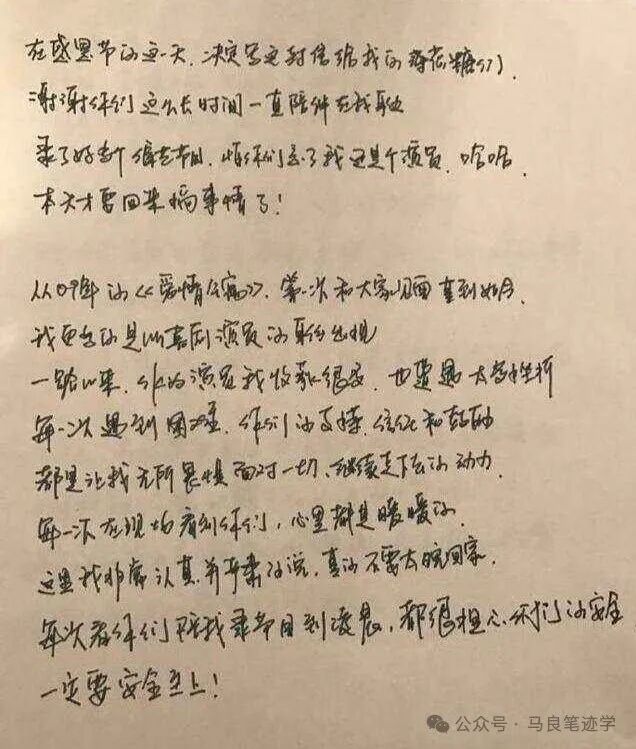 在感恩节的这一天，决定写这封信给我的薄荷糖们，
谢谢你们这么长时间一直陪伴在我身边
录了好多个综艺节目，怕你们忘了我还是个演员，哈哈，
本天才要回来搞事情了！
从09年的《爱情公寓》，第一次和大家见面直到如今，
我更多的是以喜剧演员的身份出现
一路以来，作为演员我收获很多，也遭遇太多挫折
每一次遇到困难，你们的支持、信任和鼓励
都是让我无所畏惧面对一切、继续走下去的动力，
每一次在现场看到你们，心里都是暖暖的，
这里我非常认真并严肃的说，真的不要太晚回家，
每次看你们陪我录节目到凌晨，都很担心你们的安全
一定要安全至上！
公众号·马良笔迹学